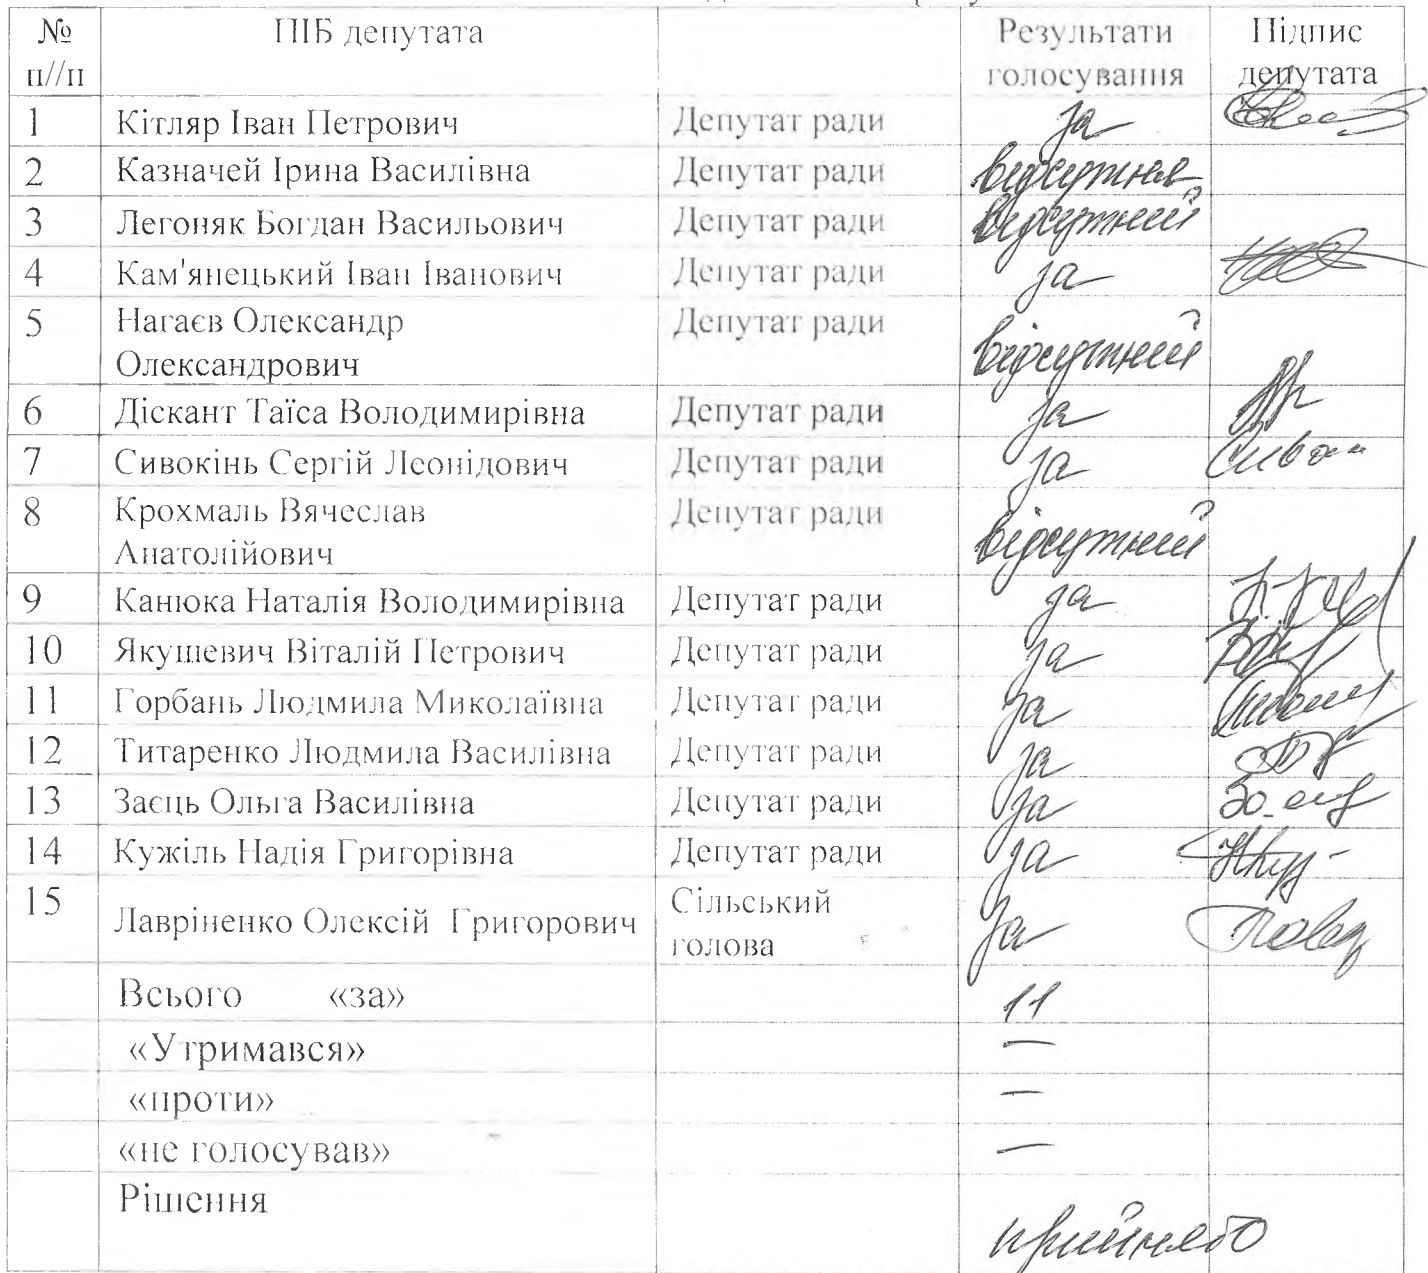 № ПІБ депутата Результати Підпис
п//п голосування депутата
1 Кітляр Іван Петрович Депутат ради за
2 Казначей Ірина Василівна Депутат ради відсутня
3 Легоняк Богдан Васильович Депутат ради відсутній
4 Кам'янецький Іван Іванович Депутат ради за
5 Нагаєв Олександр Депутат ради відсутній
Олександрович
6 Діскант Таїса Володимирівна Депутат ради за
7 Сивокінь Сергій Леонідович Депутат ради за
8 Крохмаль Вячеслав Депутат ради відсутній
Анатолійович
9 Канюка Наталія Володимирівна Депутат ради за
10 Якушевич Віталій Петрович Депутат ради за
11 Горбань Людмила Миколаївна Депутат ради за
12 Титаренко Людмила Василівна Депутат ради за
13 Заєць Ольга Василівна Депутат ради за
14 Кужіль Надія Григорівна Депутат ради за
15 Лавріненко Олексій Григорович Сільський за
голова
Всього «за» 11
«Утримався» —
«проти» —
«не голосував» —
Рішення прийнято